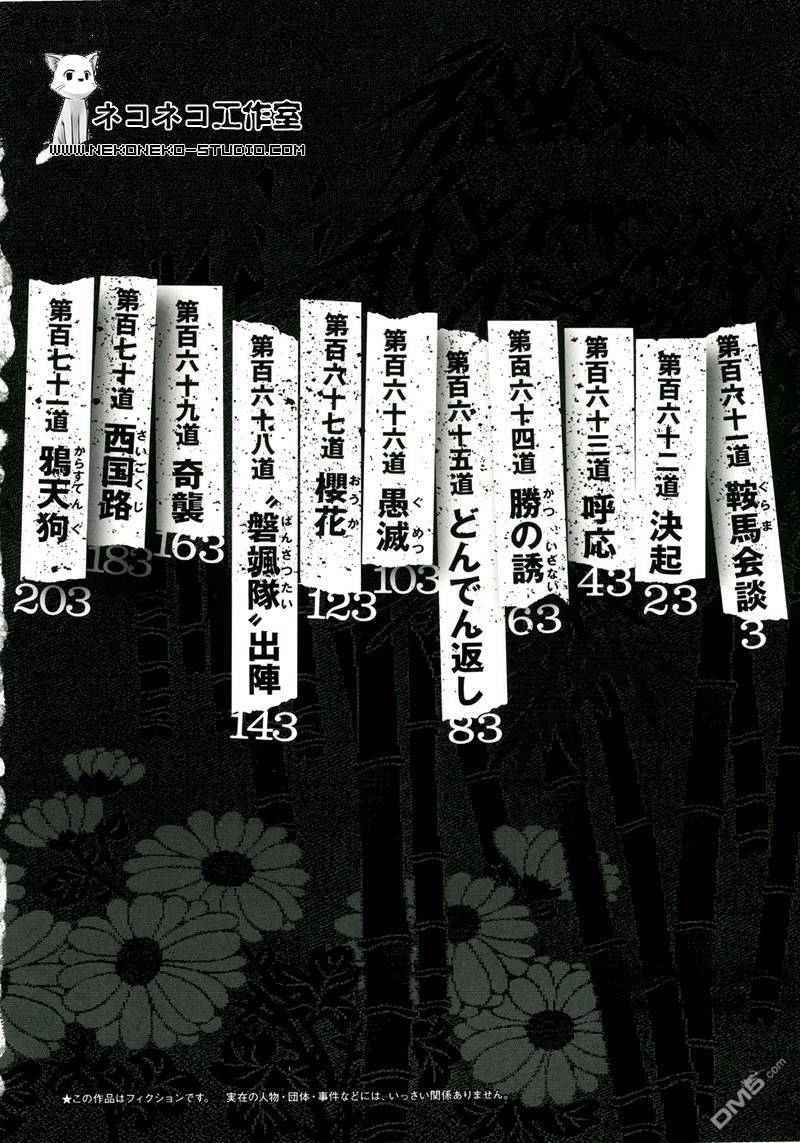 ネコネコ工作室
WWW.NEKONEKO-STUDIO.COM
第百六十一道 鞍馬会談
ぐらま
3
第百六十二道 決起
23
第百六十三道 呼応
43
第百六十四道 勝の誘
かつ いざない
63
第百六十五道 どんでん返し
83
第百六十六道 愚滅
ぐめつ
103
第百六十七道 櫻花
おうか
123
第百六十八道 “磐颯隊”出陣
ばんさつたい
143
第百六十九道 奇襲
163
第百七十道 西国路
さいごくじ
183
第百七十一道 鴉天狗
からすてんぐ
203
★この作品はフィクションです。 実在の人物・団体・事件などには、いっさい関係ありません。
DM5.com